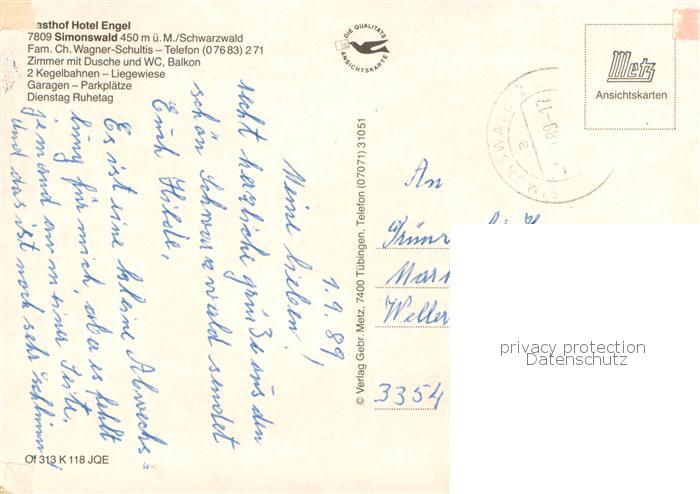 asthof Hotel Engel
7809 Simonswald 450 m ü. M./Schwarzwald
Fam. Ch. Wagner-Schultis – Telefon (0 76 83) 2 71
Zimmer mit Dusche und WC, Balkon
2 Kegelbahnen – Liegewiese
Garagen – Parkplätze
Dienstag Ruhetag
DIE QUALITÄTS
ANSICHTSKARTE
Metz
Ansichtskarten
SIMONSWALD
a
1.9.89
Meine Lieben!
recht herzliche Grüße aus den
schön Schwarzwald sendet
Euch Hilde,
Es ist eine kleine Abwechs=
lung für mich, aber es fehlt
jemand an meiner Seite.
und das ist noch sehr schlimm!
Of 313 K 118 JQE
© Verlag Gebr. Metz, 7400 Tübingen, Telefon (07071) 31051
An
3354
privacy protection
Datenschutz